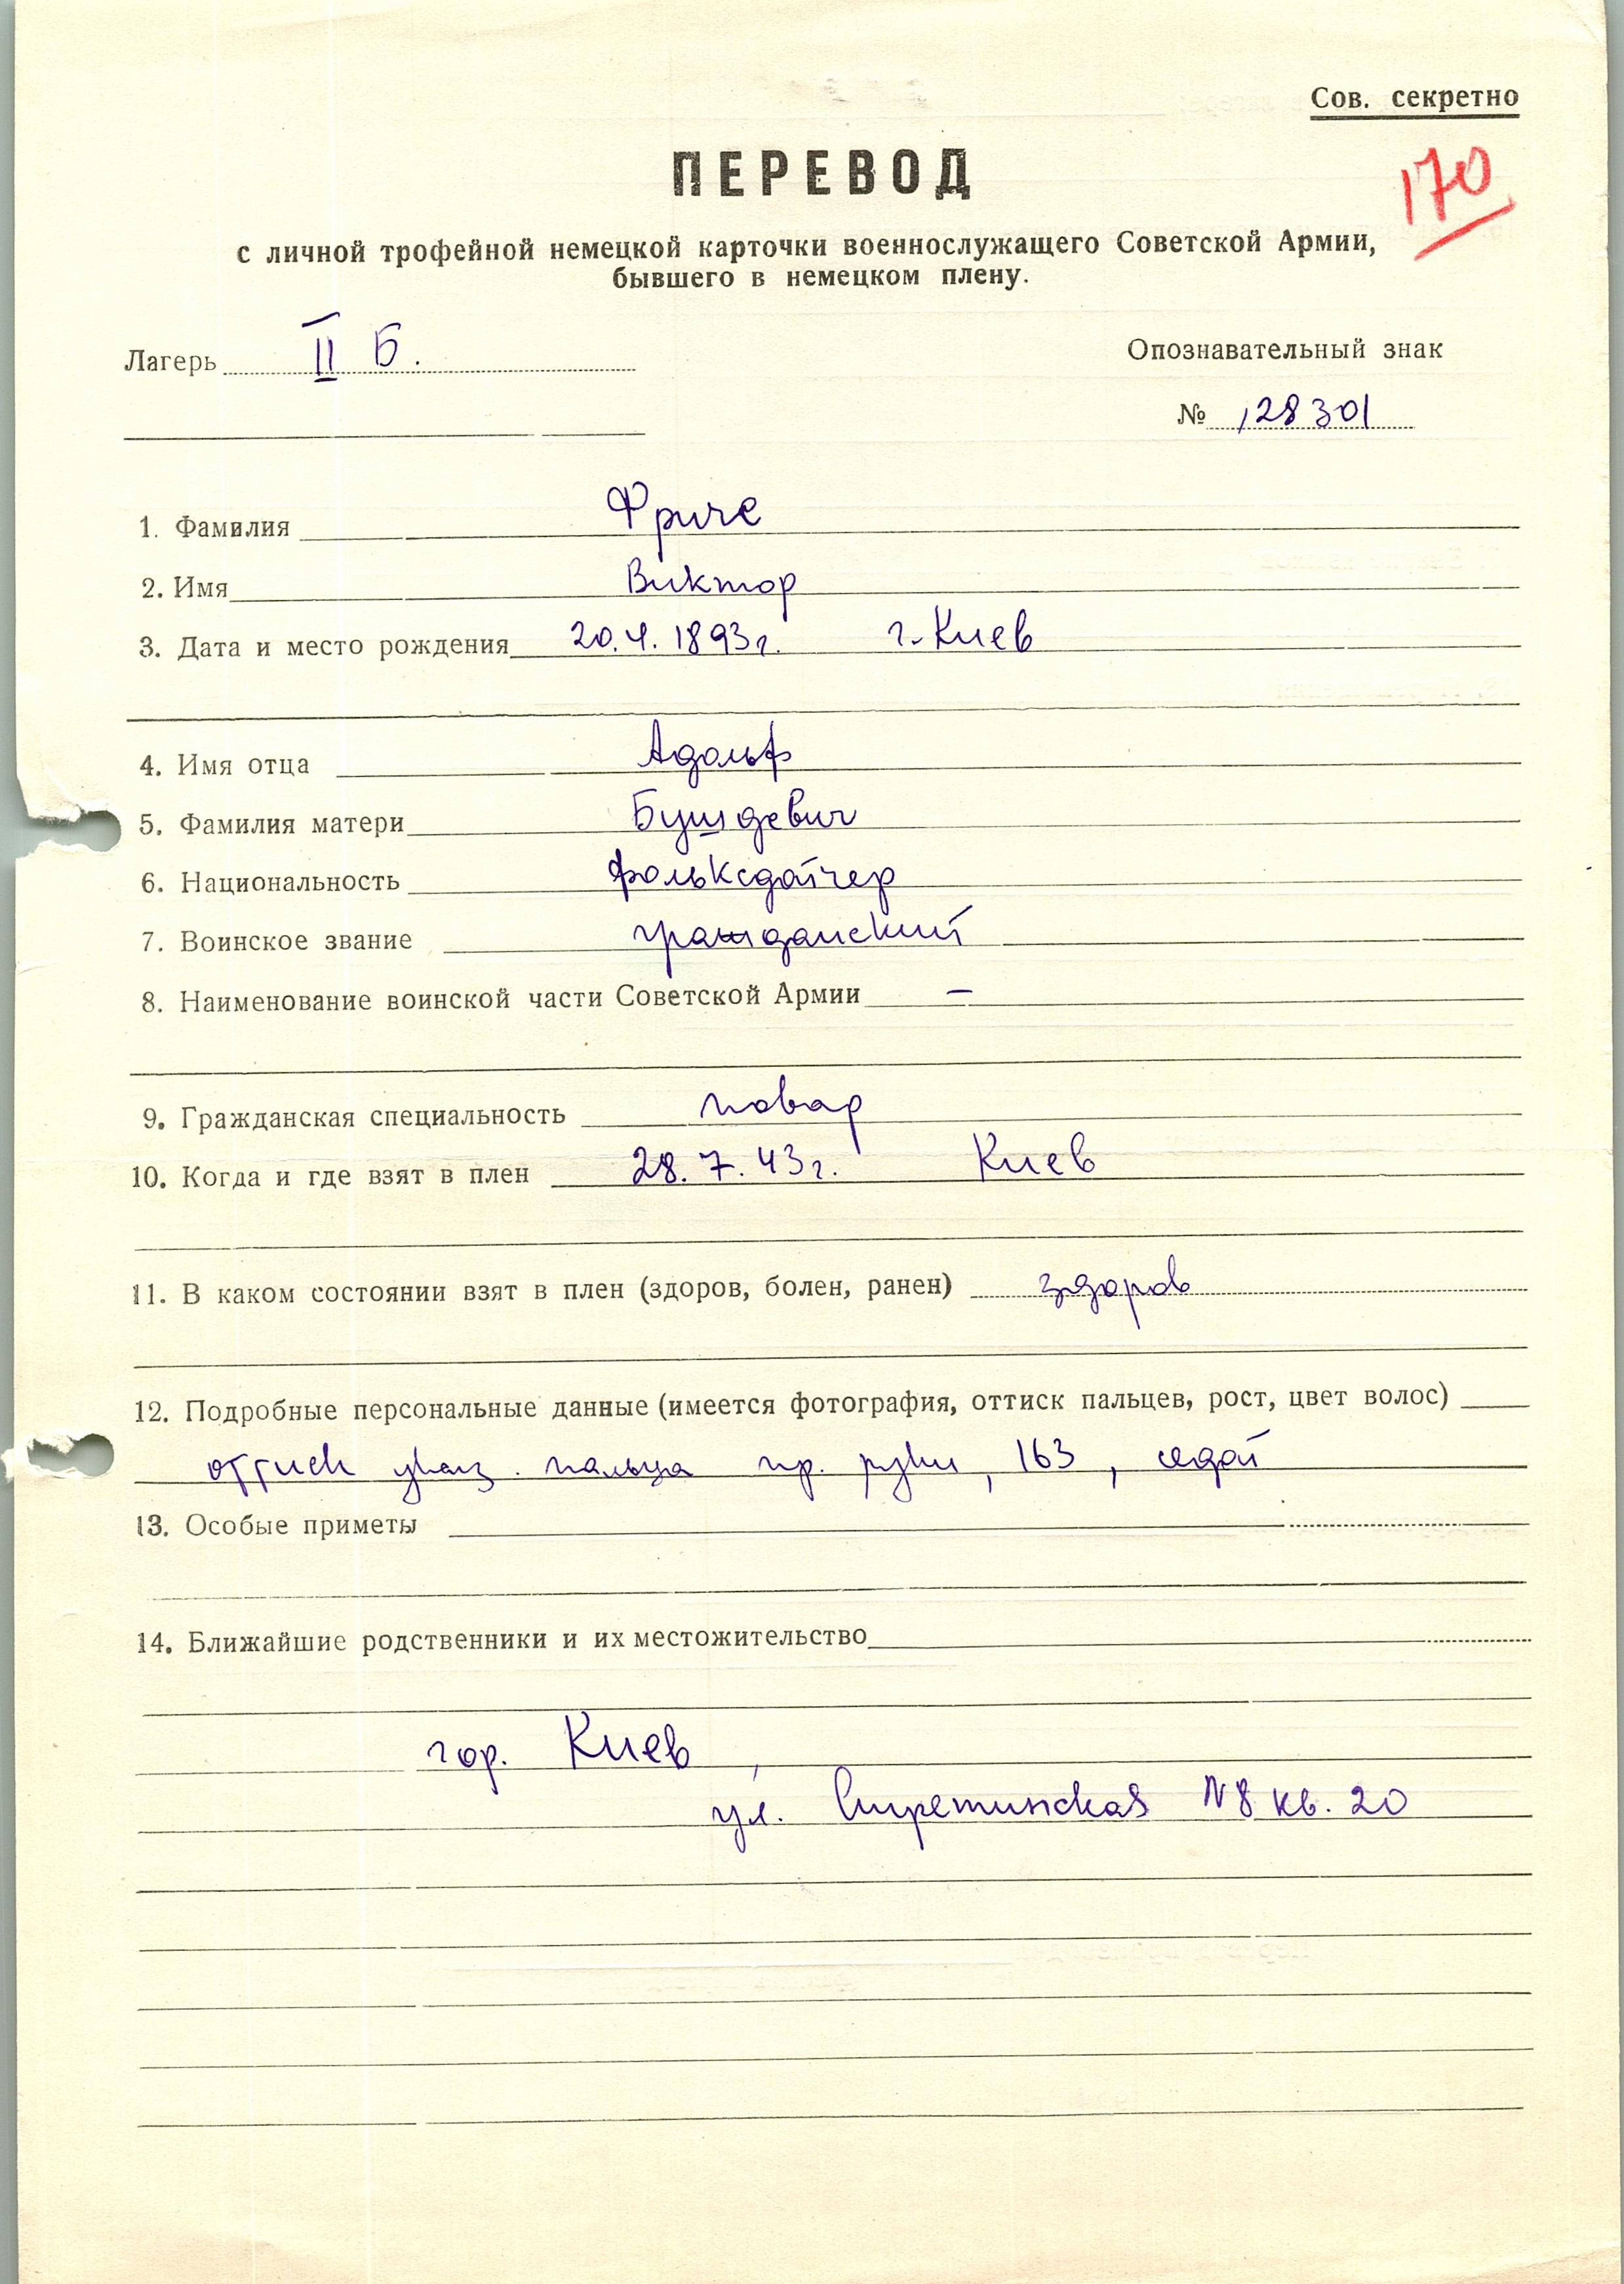 Сов. секретно
ПЕРЕВОД
170
с личной трофейной немецкой карточки военнослужащего Советской Армии,
бывшего в немецком плену.
Лагерь II Б.
Опознавательный знак
№ 128301
1. Фамилия Фриче
2. Имя Виктор
3. Дата и место рождения 20.4.1893г. г. Киев
4. Имя отца Адольф
5. Фамилия матери Бушдевич
6. Национальность фольксдойчер
7. Воинское звание гражданский
8. Наименование воинской части Советской Армии –
9. Гражданская специальность повар
10. Когда и где взят в плен 28.7.43г. Киев
11. В каком состоянии взят в плен (здоров, болен, ранен) здоров
12. Подробные персональные данные (имеется фотография, оттиск пальцев, рост, цвет волос)
оттиск указ. пальца пр. руки, 163, седой
13. Особые приметы
14. Ближайшие родственники и их местожительство
гор. Киев,
ул. N 8 кв. 20